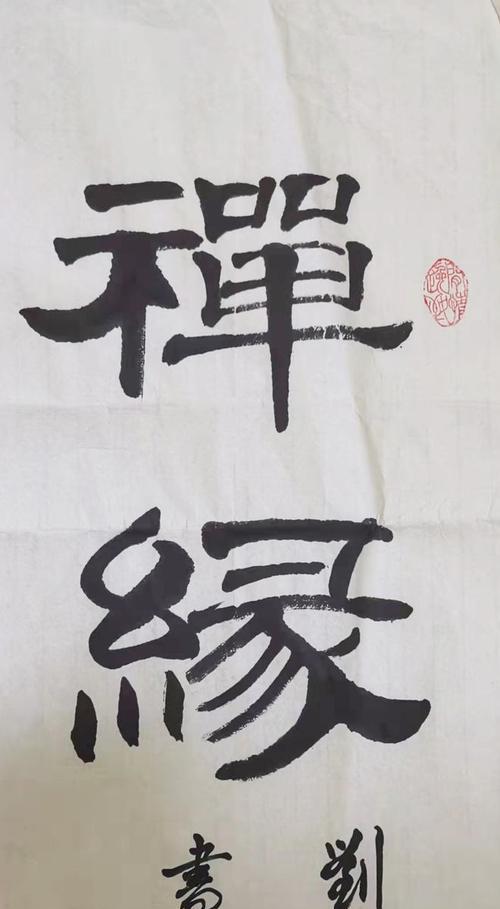 禪
緣
劉
書